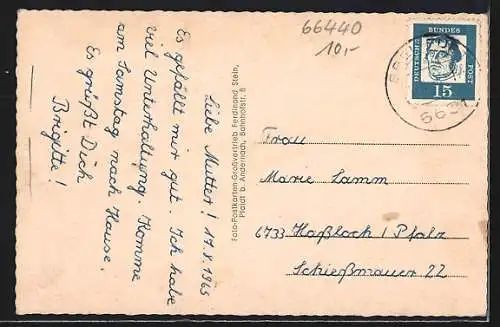 Liebe Mutter! 17.8.1965
Es gefällt mir gut. Ich habe
viel Unterhaltung. Komme
am Samstag nach Hause.
Es grüßt Dich
Brigitte!
Foto-Postkarten-Großvertrieb Ferdinand Stein,
Plaidt b. Andernach, Bahnhofstr. 8
66440
10,-
DEUTSCHE BUNDESPOST
15
Frau
Marie Lamm
6733 Haßloch / Pfalz
Schießmauer 22